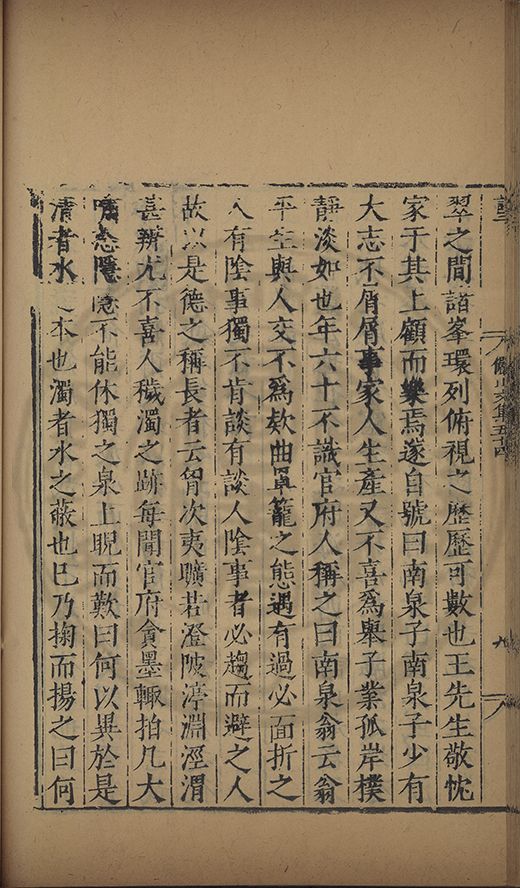 翠之間諸峯環列俯視之歷歷可數也王先生敬忱
家于其上顧而樂焉遂自號曰南泉子南泉子少有
大志不屑屑事家人生產又不喜為舉子業孤岸樸
靜淡如也年六十不識官府人稱之曰南泉翁云翁
平生與人交不為欵曲罩籠之態遇有過必面折之
人有陰事獨不肯談有談人陰事者必趨而避之人
故以是德之稱長者云胷次夷曠若澄陂渟淵涇渭
甚辨尤不喜人穢濁之跡每聞官府貪墨輒拍几大
隱隱不能休獨之泉上睨而歎曰何以異於是
清者水之本也濁者水之蔽也巳乃掬而揚之曰何